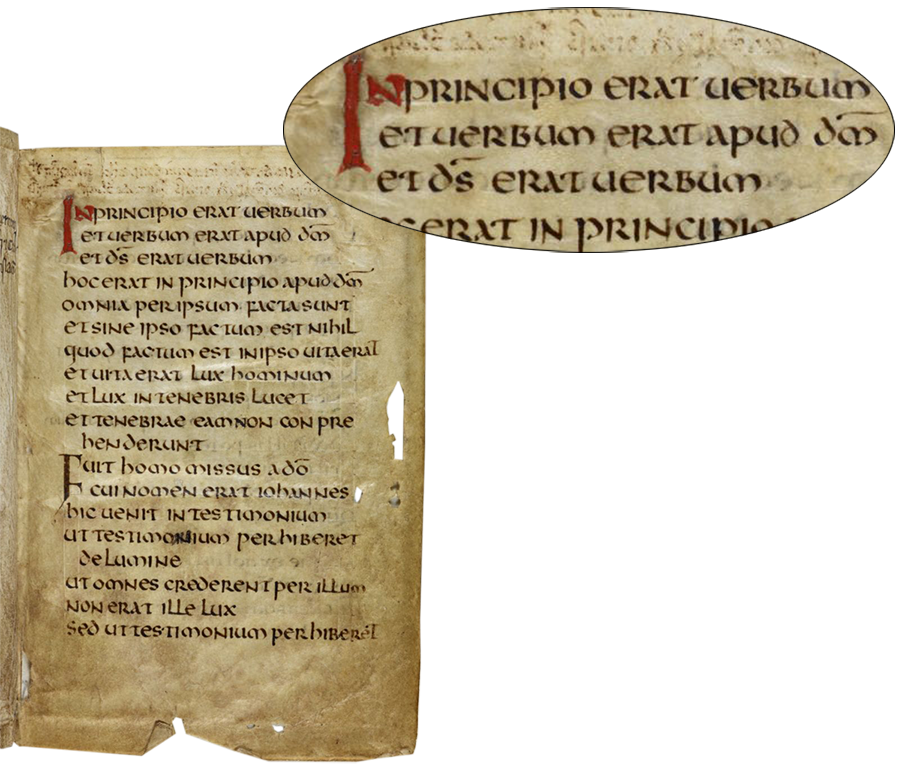 In principio erat uerbum
et uerbum erat apud dm̄
et ds̄ erat uerbum
erat in principio
In principio erat uerbum
et uerbum erat apud dm̄
et ds̄ erat uerbum
hoc erat in principio apud dm̄
omnia per ipsum facta sunt
et sine ipso factum est nihil
quod factum est in ipso uita erat
et uita erat lux hominum
et lux in tenebris lucet
et tenebrae eam non conpre
henderunt
Fuit homo missus a dō
cui nomen erat iohannes
hic uenit in testimonium
ut testimonium perhiberet
de lumine
ut omnes crederent per illum
non erat ille lux
sed ut testimonium perhiberet